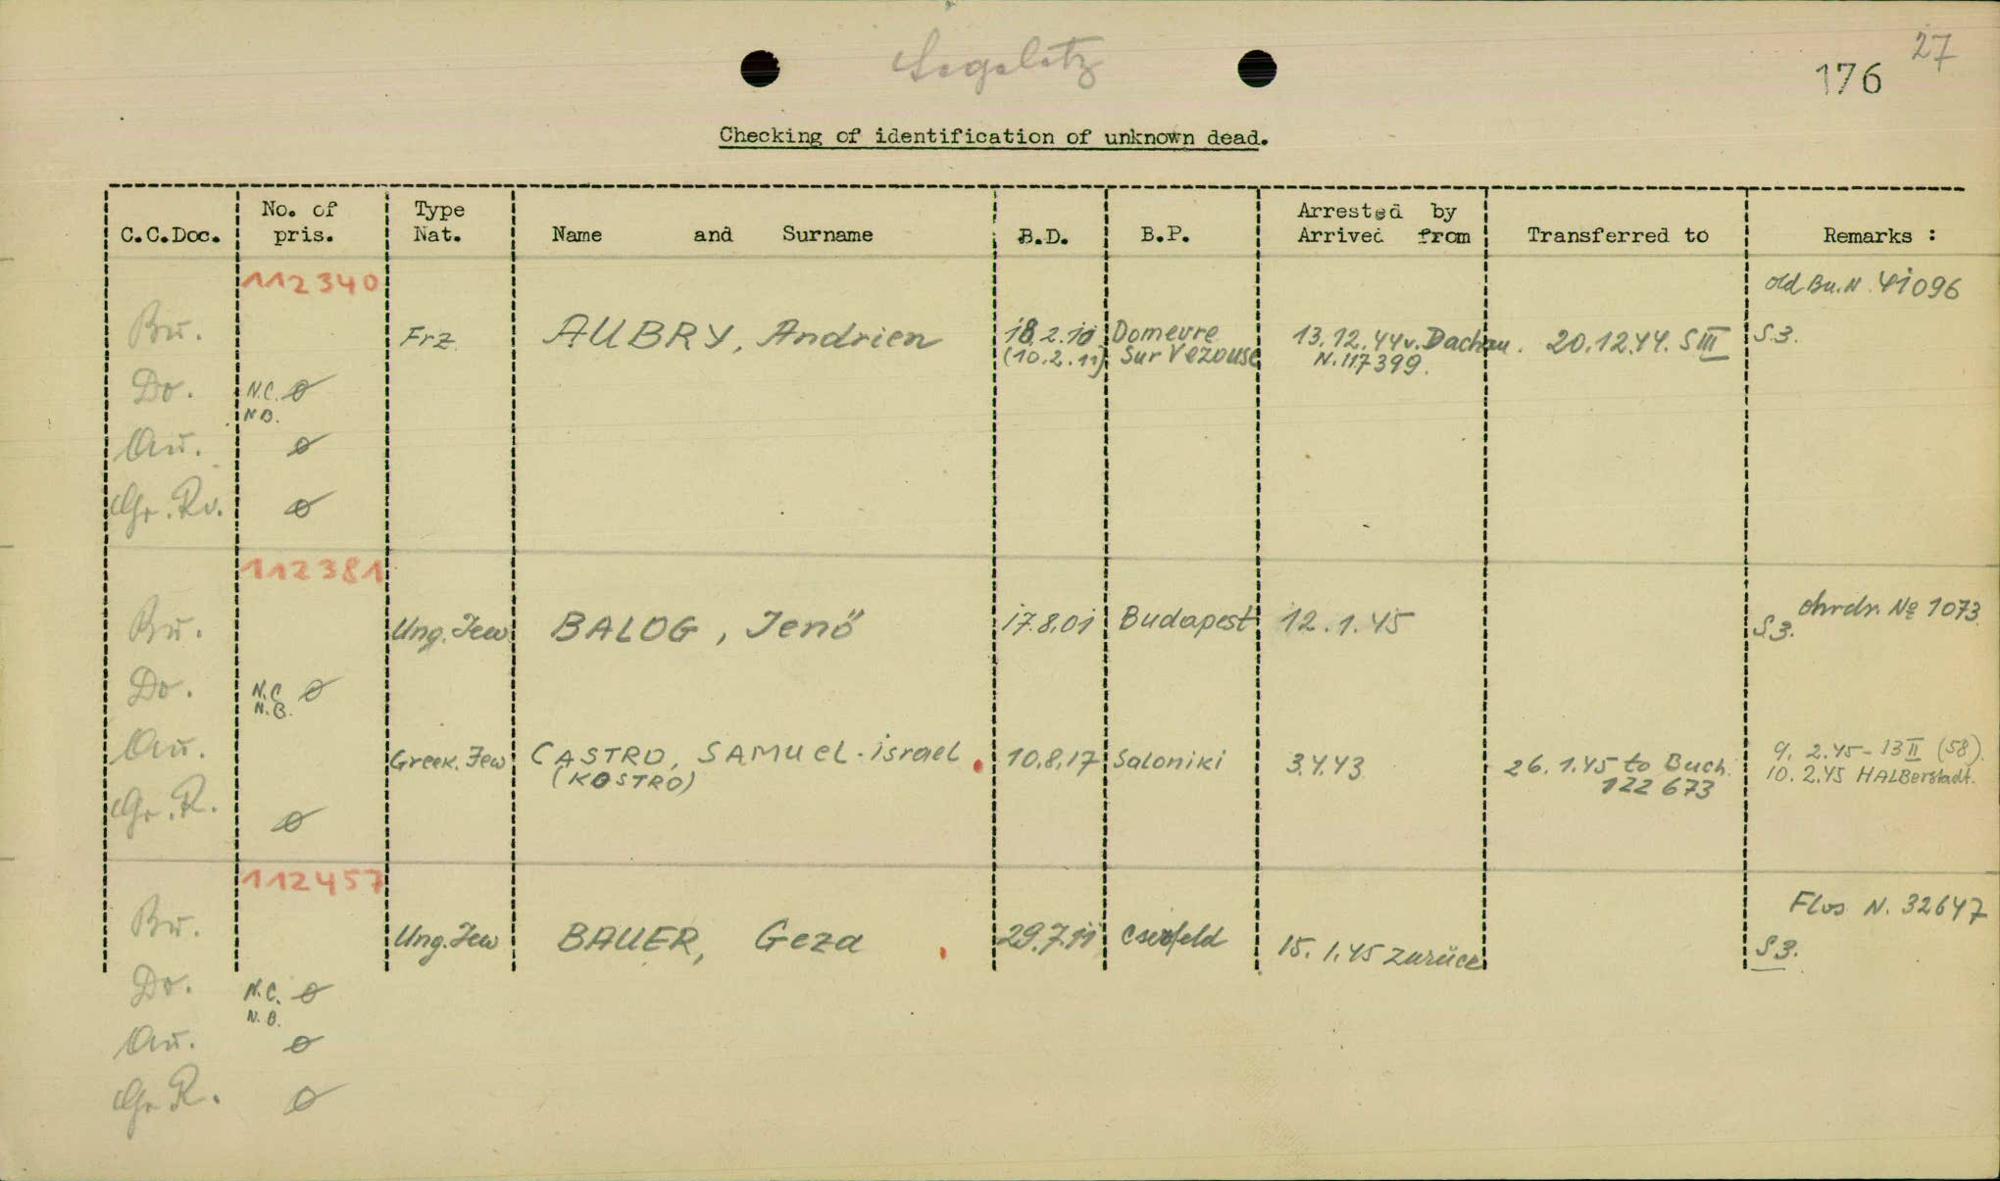 27
176
Checking of identification of unknown dead.
C.C.Doc. No. of pris. Type Nat. Name and Surname B.D. B.P. Arrested by Arrived from Transferred to Remarks :
112340 old Bu.N 41096
Bu. Frz. AUBRY, Andrien 18.2.10 Domevre 13.12.44 v. Dachau. 20.12.44. S III S3.
(10.2.11) Sur Vezouse N.117399.
Do. N.C. ø
N.B.
Au. ø
Gr.Ro. ø
112381 ohrdr. № 1073
Bu. Ung.Jew BALOG, Jenő 17.8.01 Budapest 12.1.45 S3.
Do. N.C. ø
N.B.
Au. Greek.Jew CASTRO, SAMuel-israel 10.8.17 Saloniki 3.4.43 26.1.45 to Buch. 9.2.45-13 II (58)
(KOSTRO) 122673 10.2.45 HALBerstadt.
Gr.R. ø
112457 Flos N. 32647
Bu. Ung.Jew BAUER, Geza 29.7.11 15.1.45 zurück S3.
Do. N.C. ø
N.B.
Au. ø
Gr.R. ø